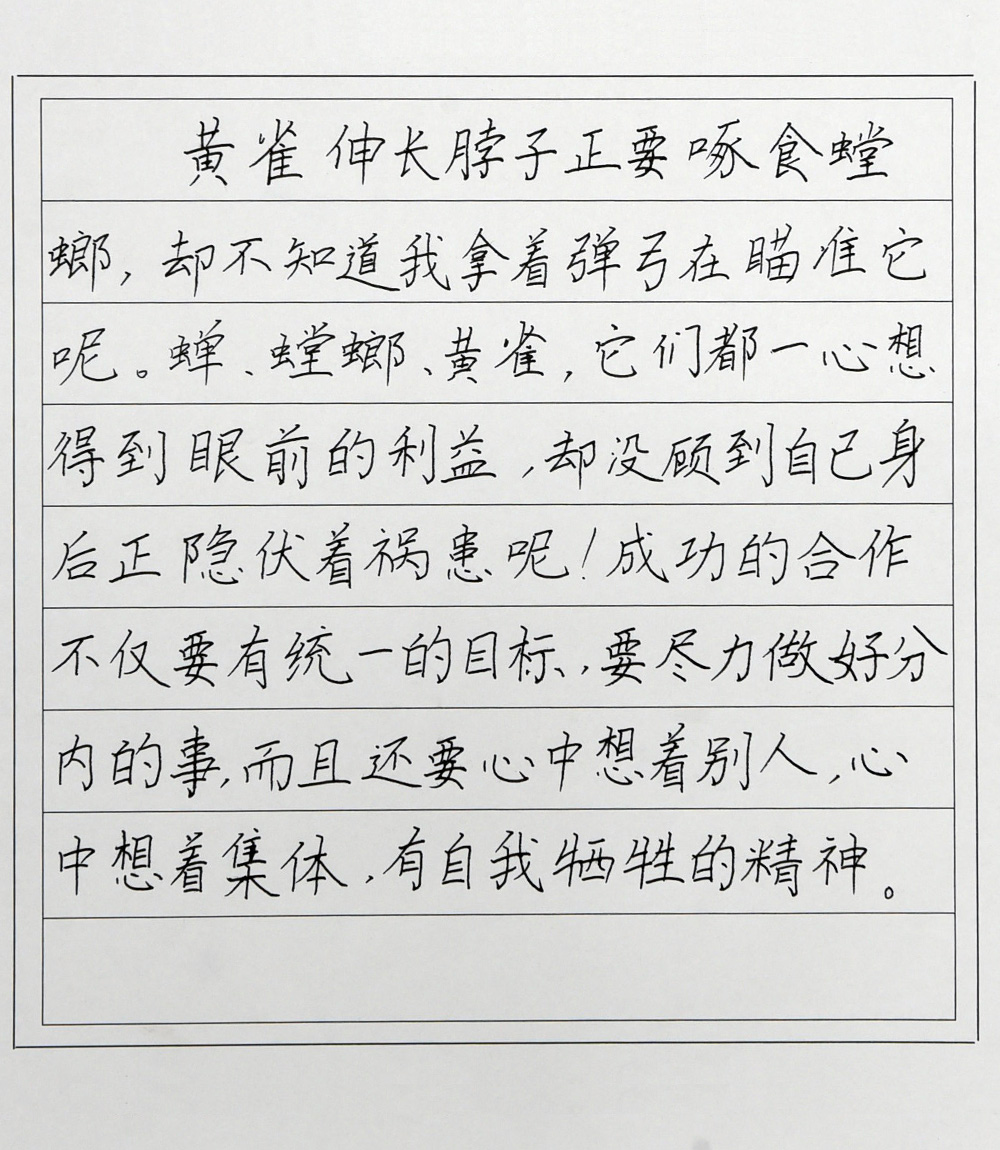 黄雀伸长脖子正要啄食螳
螂,却不知道我拿着弹弓在瞄准它
呢。蝉、螳螂、黄雀,它们都一心想
得到眼前的利益,却没顾到自己身
后正隐伏着祸患呢!成功的合作
不仅要有统一的目标,要尽力做好分
内的事,而且还要心中想着别人,心
中想着集体,有自我牺牲的精神。